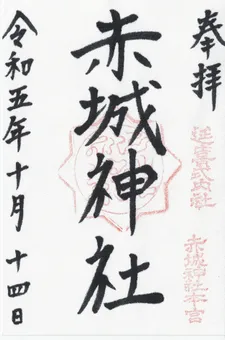 奉拝
延喜式内社
赤城神社本宮
赤城神社
令和五年十月十四日